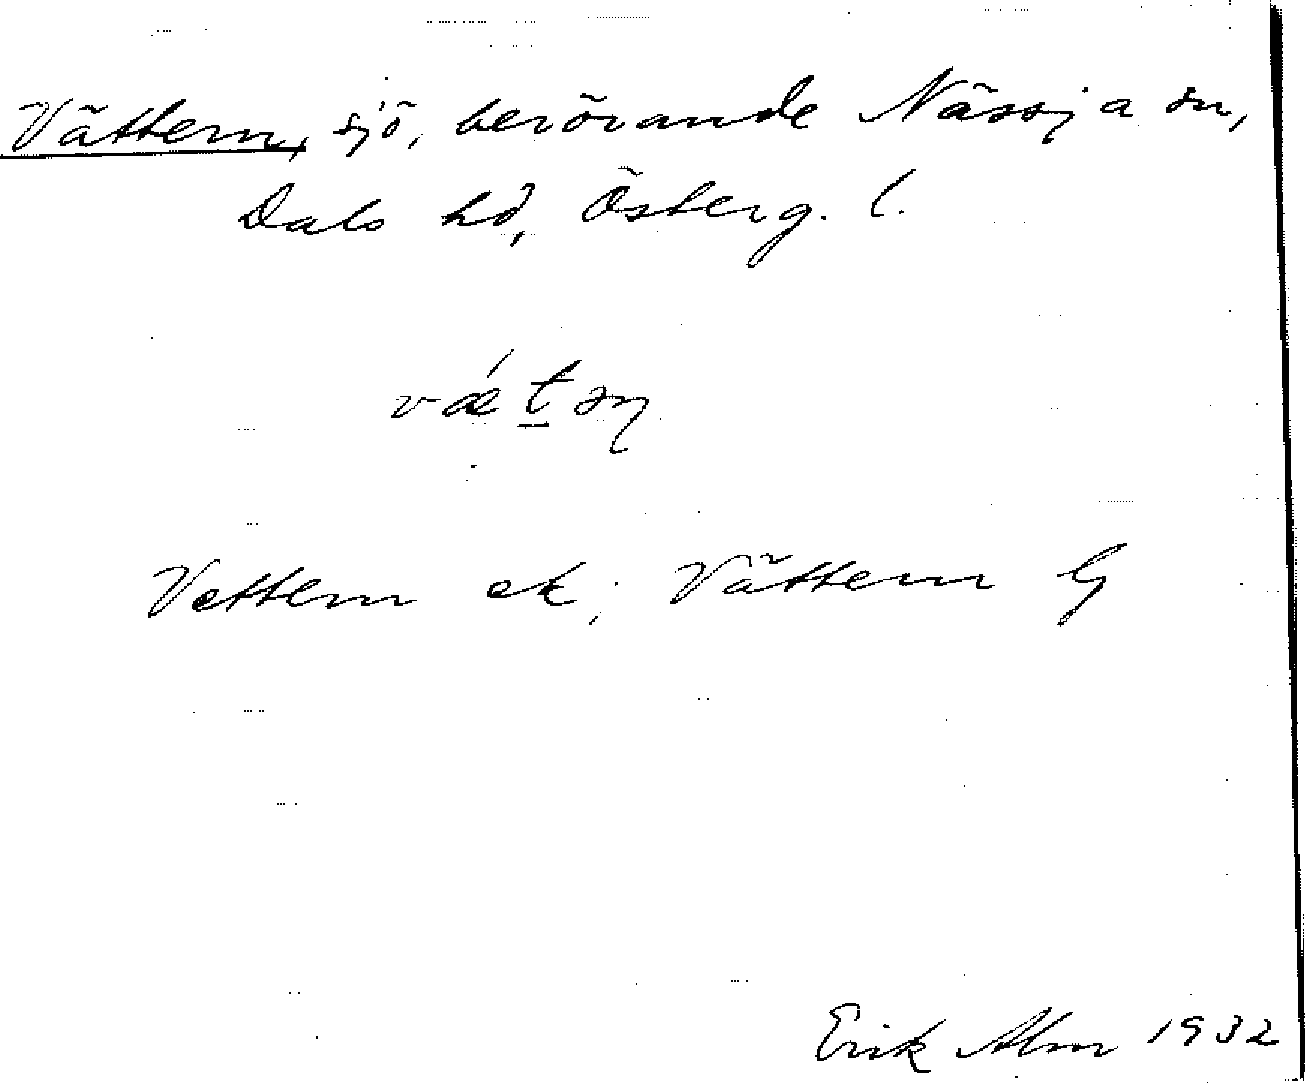 Vättern, sjö, berörande Nässja sn,
Dals hd, Österg. l.
vǽt̲əɳ
Vettern ek; Vättern G
Erik Alm 1932